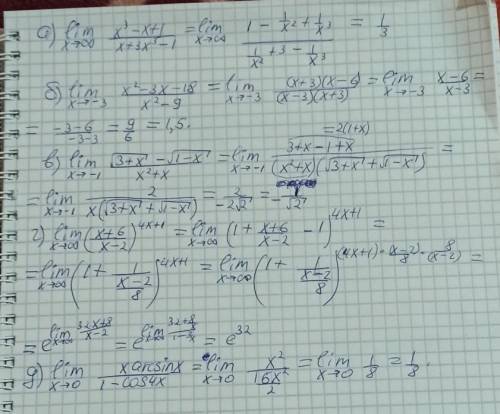 а) lim x→∞ (x³-x+1)/(x+3x³-1) = lim x→∞ (1 - 1/x² + 1/x³)/(1/x² + 3 - 1/x³) = 1/3
б) lim x→-3 (x²-3x-18)/(x²-9) = lim x→-3 ((x+3)(x-6))/((x-3)(x+3)) = lim x→-3 (x-6)/(x-3) =
= (-3-6)/(-3-3) = 9/6 = 1,5.
=2(1+x)
в) lim x→-1 (√(3+x) - √(1-x))/(x²+x) = lim x→-1 (3+x-1+x)/((x²+x)(√(3+x)+√(1-x))) =
= lim x→-1 2/(x(√(3+x)+√(1-x))) = 2/(-2√2) = -1/√2
г) lim x→∞ ((x+6)/(x-2))^(4x+1) = lim x→∞ (1 + (x+6)/(x-2) - 1)^(4x+1) =
= lim x→∞ (1 + 1/((x-2)/8))^(4x+1) = lim x→∞ (1 + 1/((x-2)/8))^((4x+1)·(x-2)/8·8/(x-2)) =
= e^(lim x→∞ (32x+8)/(x-2)) = e^(lim x→∞ (32+8/x)/(1-2/x)) = e^32
д) lim x→0 (x arcsinx)/(1-cos4x) = lim x→0 x²/(16x²/2) = lim x→0 1/8 = 1/8.